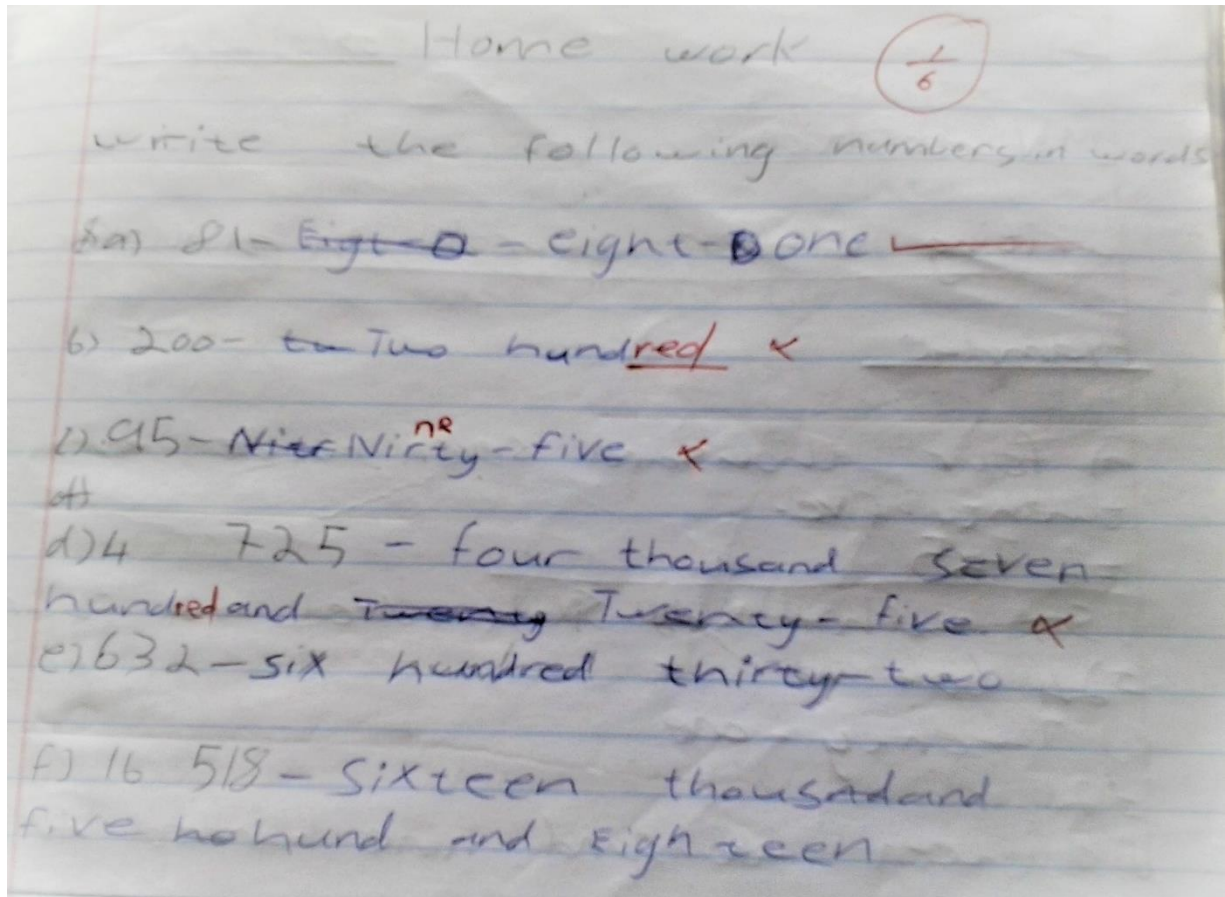 Home work 1/6
write the following numbers in words
a) 81- Eigt-O - eight-one
b) 200- tu Two hundred ×
c) 95- Nirty-five ne ×
d) 4 725 - four thousand seven
hundred and Twenty Twenty-five ×
e) 632 - six hundred thirty-two
f) 16 518 - sixteen thousadand
five ho hund and Eighteen